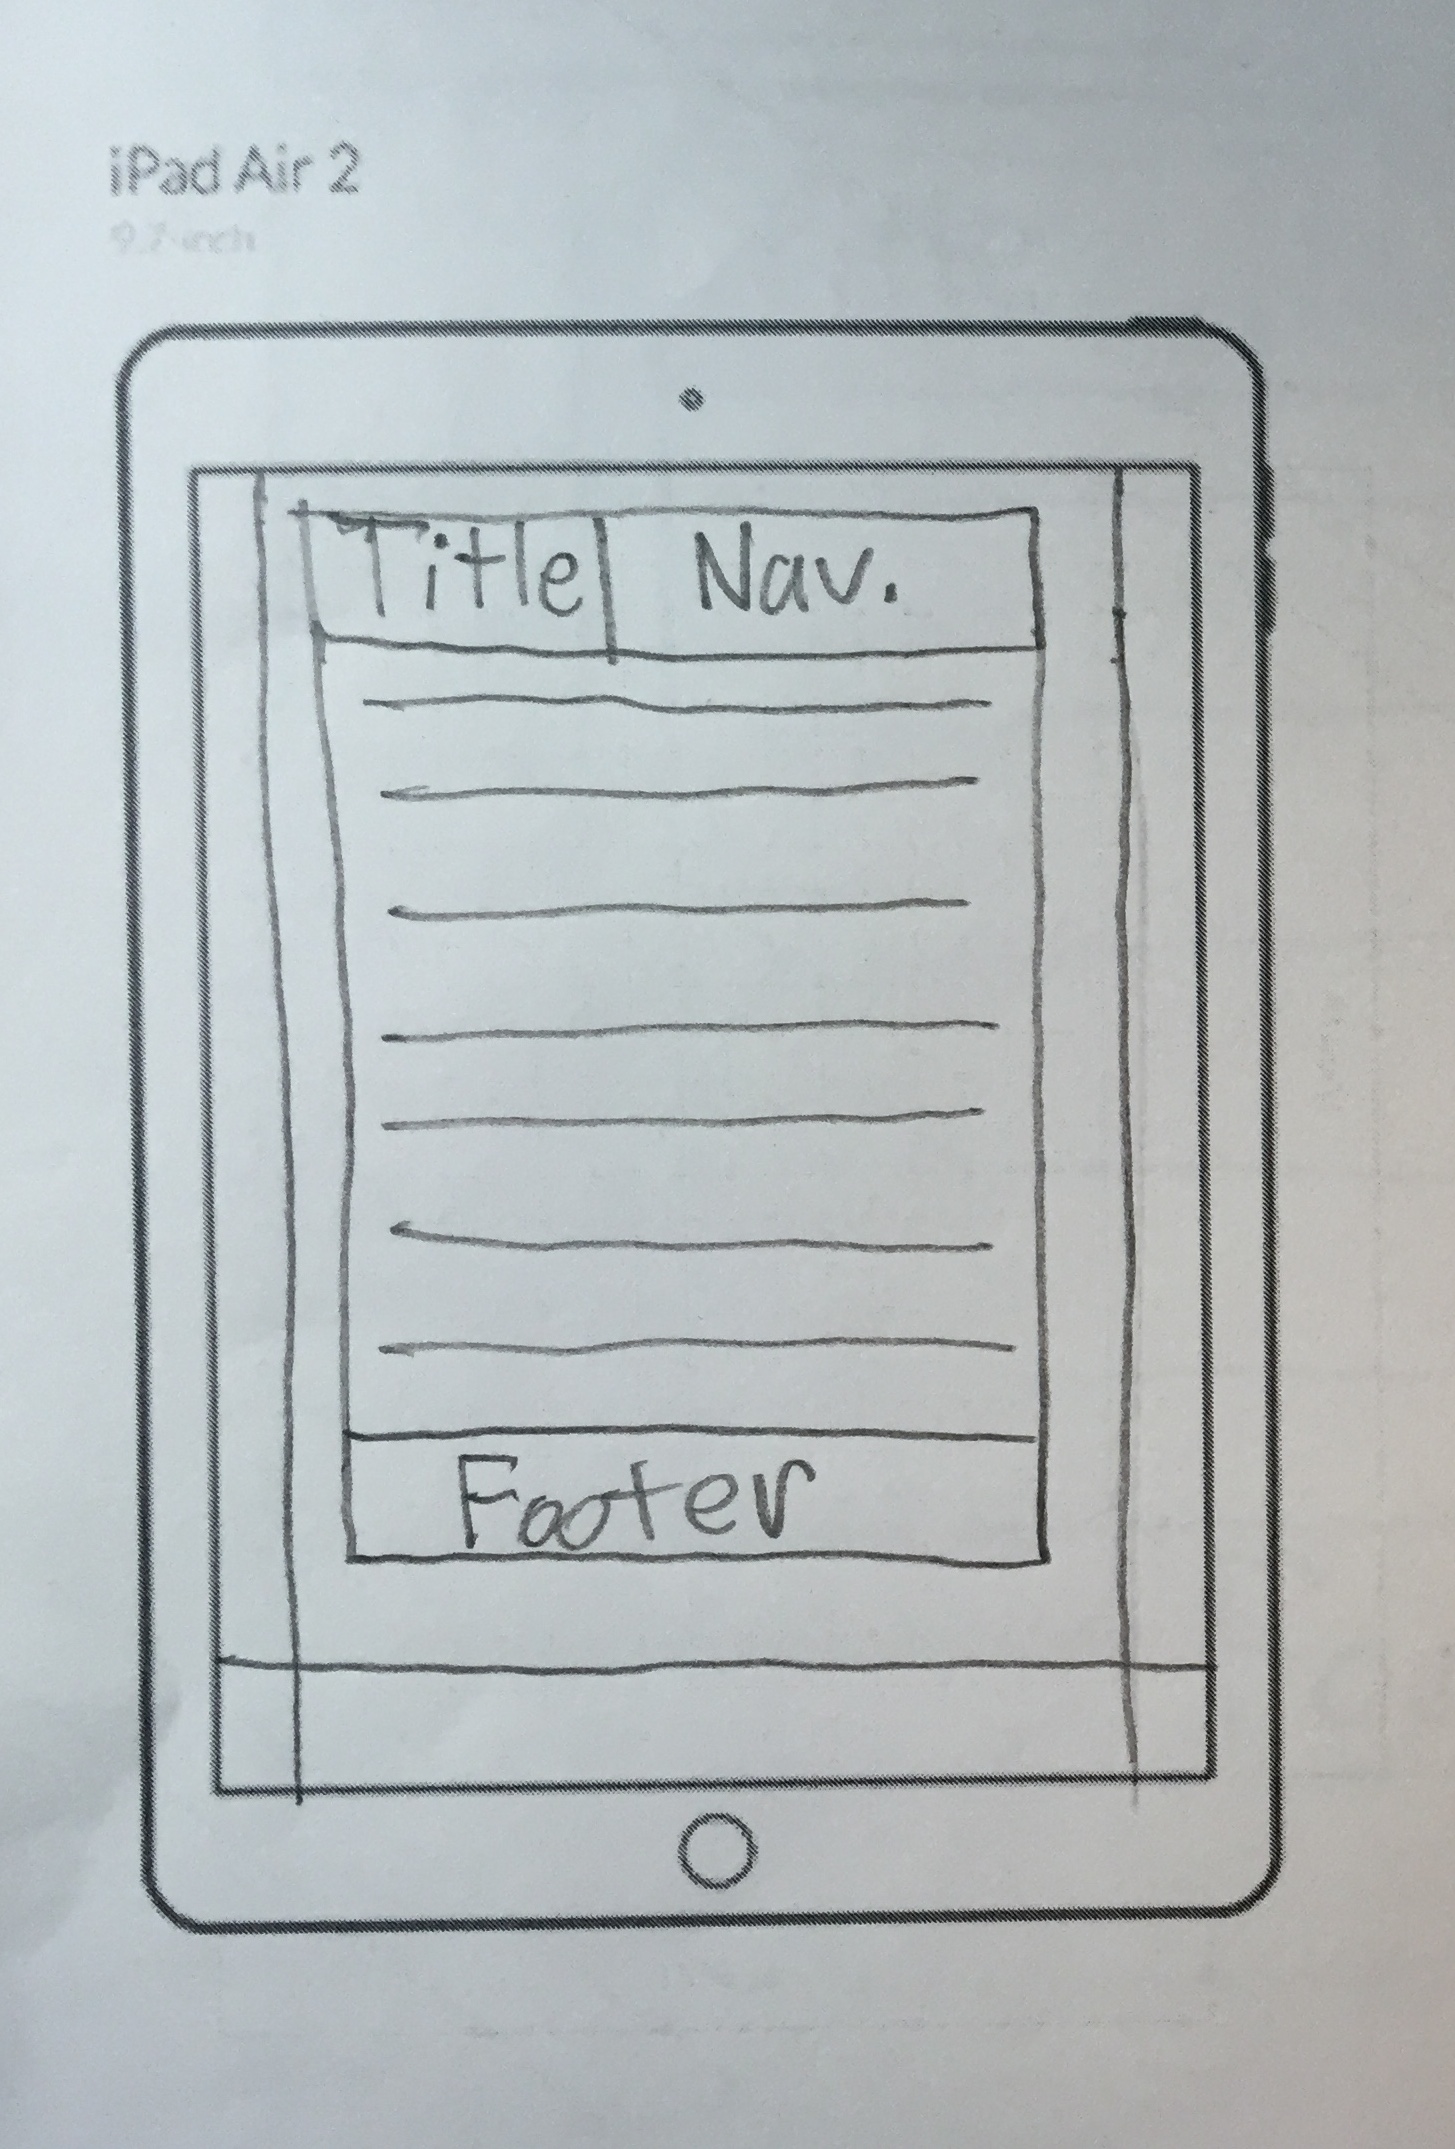 iPad Air 2
9.7-inch
Title Nav.
Footer